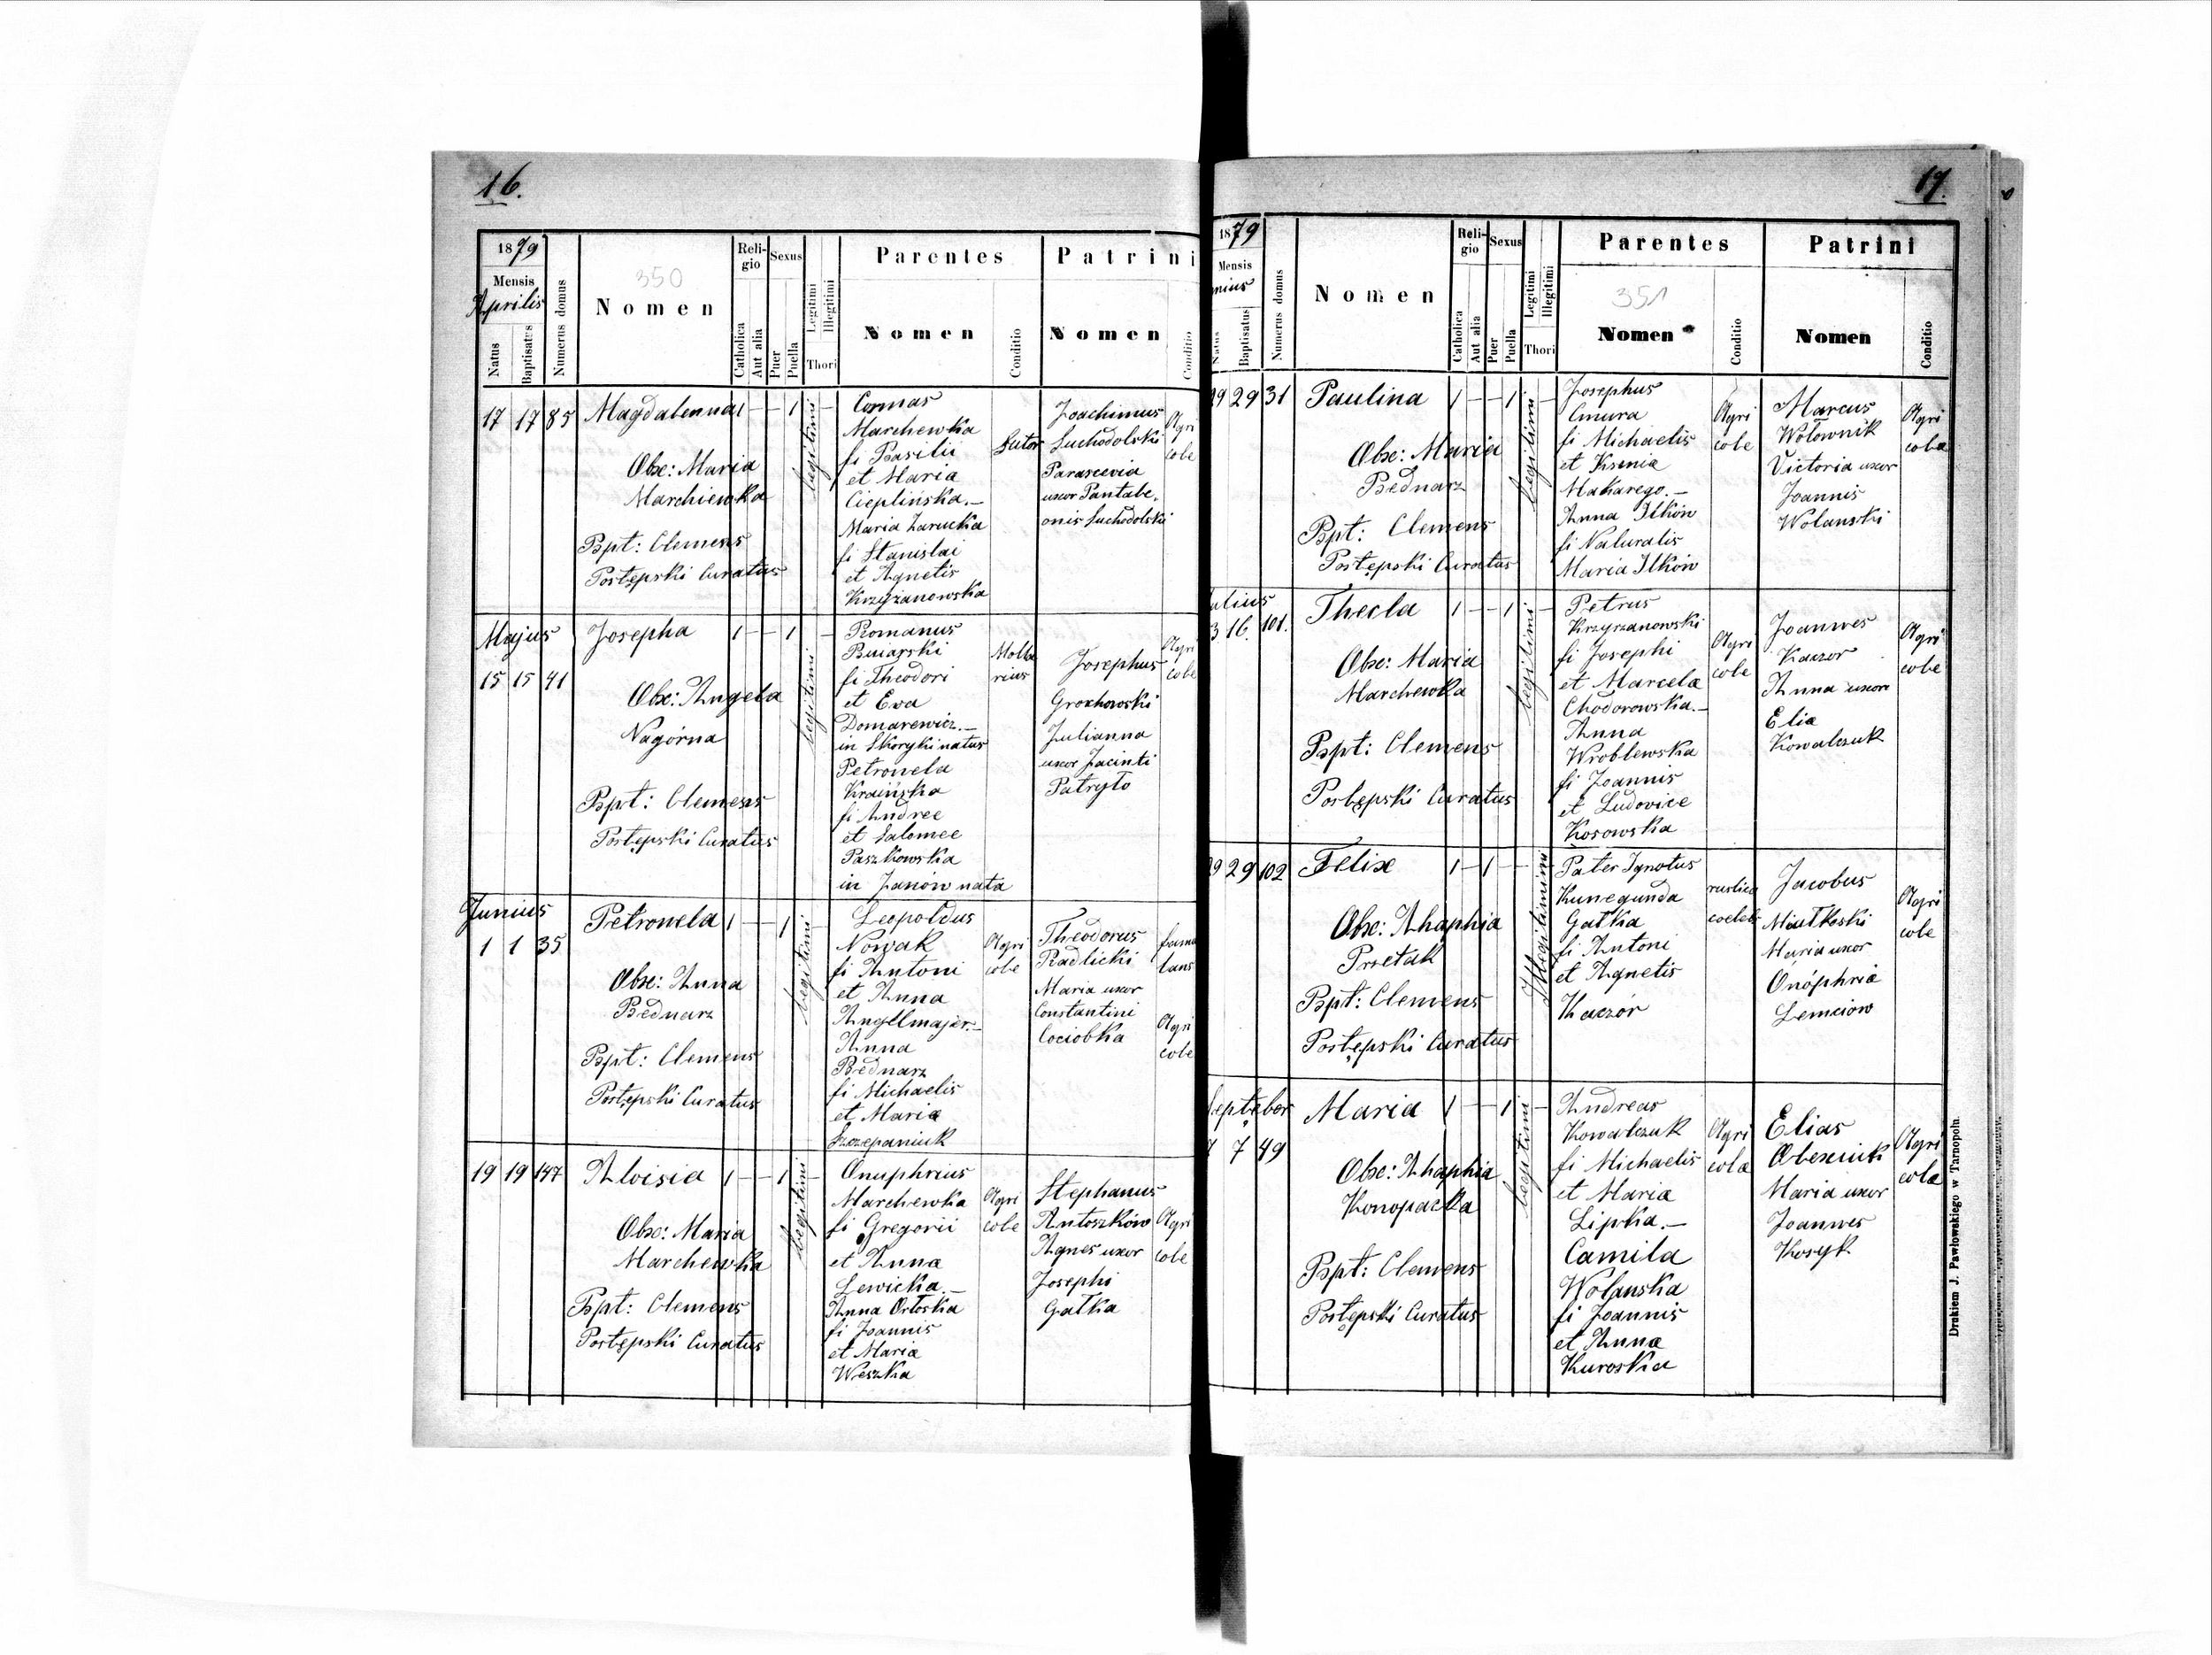 16.
1879
Mensis
Aprilis
Natus
Baptisatus
Numerus domus
350
Nomen
Religio
Catholica
Aut alia
Sexus
Puer
Puella
Legitimi
Illegitimi
Thori
Parentes
Nomen
Conditio
Patrini
Nomen
Conditio
17 17 85 Magdalenna 1 – – 1 –
Obse: Maria
Marchiewka
Bpt: Clemens
Postępski Curatus
legitimi
Cosmas
Marchewka
fi Basilii
et Maria
Cieplińska.–
Maria Zarucka
fi Stanislai
et Agnetis
Krzyżanowska
Sutor
Joachimus
Suchodolski
Parascevia
uxor Pantale,
onis Suchodolski
Agri
cole
Majus
15 15 41 Josepha 1 – – 1 –
Obse: Angela
Nagórna
Bpt: Clemens
Postępski Curatus
legitimi
Romanus
fi Theodori
et Eva
Domarewicz.–
in Skoryki natus
Petronela
Kraińska
fi Andree
et Salomee
Paszkowska
in Janów nata
Josephus
Grochowski
Julianna
uxor Jacinti
Patryło
Agri
cole
Junius
1 1 35 Petronela 1 – – 1 –
Obse: Anna
Bednarz
Bpt: Clemens
Postępski Curatus
legitimi
Leopoldus
Nowak
fi Antoni
et Anna
Angllmajer.–
Anna
Bednarz
fi Michaelis
et Maria
Szczepaniuk
Agri
cole
Theodorus
Radlicki
Maria uxor
Constantini
Cociobka
famu
lans
Agri
cole
19 19 147 Aloisia 1 – – 1 –
Obse: Maria
Marchewka
Bpt: Clemens
Postępski Curatus
legitimi
Onuphrius
Marchewka
fi Gregorii
et Anna
Lewicka.–
Anna Orłoska
fi Joannis
et Maria
Weszka
Agri
cole
Stephanus
Antoszków
Agnes uxor
Josephi
Gałka
Agri
cole
17.
1879
Mensis
nius
Natus
Baptisatus
Numerus domus
Nomen
Religio
Catholica
Aut alia
Sexus
Puer
Puella
Legitimi
Illegitimi
Thori
Parentes
351
Nomen
Conditio
Patrini
Nomen
Conditio
29 29 31 Paulina 1 – – 1 –
Obse: Maria
Bednarz
Bpt: Clemens
Postępski Curatus
legitimi
Josephus
Cmura
fi Michaelis
et Ksenia
Makarego.–
Anna Ilków
fi Naturalis
Maria Ilków
Agri
cole
Marcus
Wołownik
Victoria uxor
Joannis
Wolanski
Agri
cola
ulius
3 16. 101. Thecla 1 – – 1 –
Obse: Maria
Marchewka
Bpt: Clemens
Postępski Curatus
legitimi
Petrus
Krzyrzanowski
fi Josephi
et Marcela
Chodorowska.–
Anna
Wroblewska
fi Joannis
et Ludovice
Kosowska
Agri
cole
Joannes
Kaczor
Anna uxor
Elia
Kowalczuk
Agri
cole
29 29 102 Felix 1 – 1 –
Obse: Ahaphia
Przetak
Bpt: Clemens
Postępski Curatus
Illegitimini
Pater Ignotus
Kunegunda
Gałka
fi Antoni
et Agnetis
Kaczór
rustica
Jacobus
Maria uxor
Onóphria
Lemciów
Agri
cole
Septebor
7 7 49 Maria 1 – – 1 –
Obse: Ahaphia
Konopacka
Bpt: Clemens
Postępski Curatus
legitimi
Andreas
Kowalczuk
fi Michaelis
et Maria
Lipka.–
Camila
Wolanska
fi Joannis
et Anna
Kuroska
Agri
cola
Elias
Maria uxor
Joannes
Kosyk
Agri
cola
Drukiem J. Pawłowskiego w Tarnopolu.